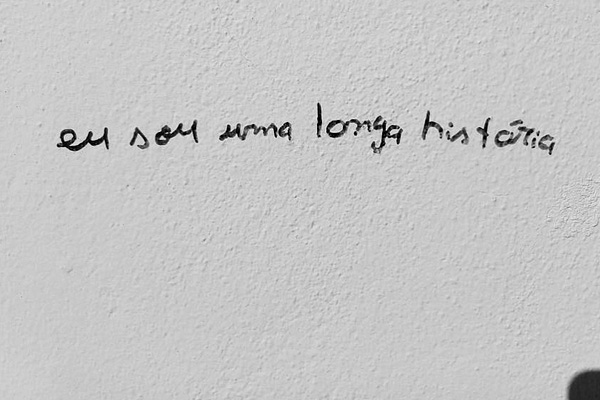 eu sou uma longa história